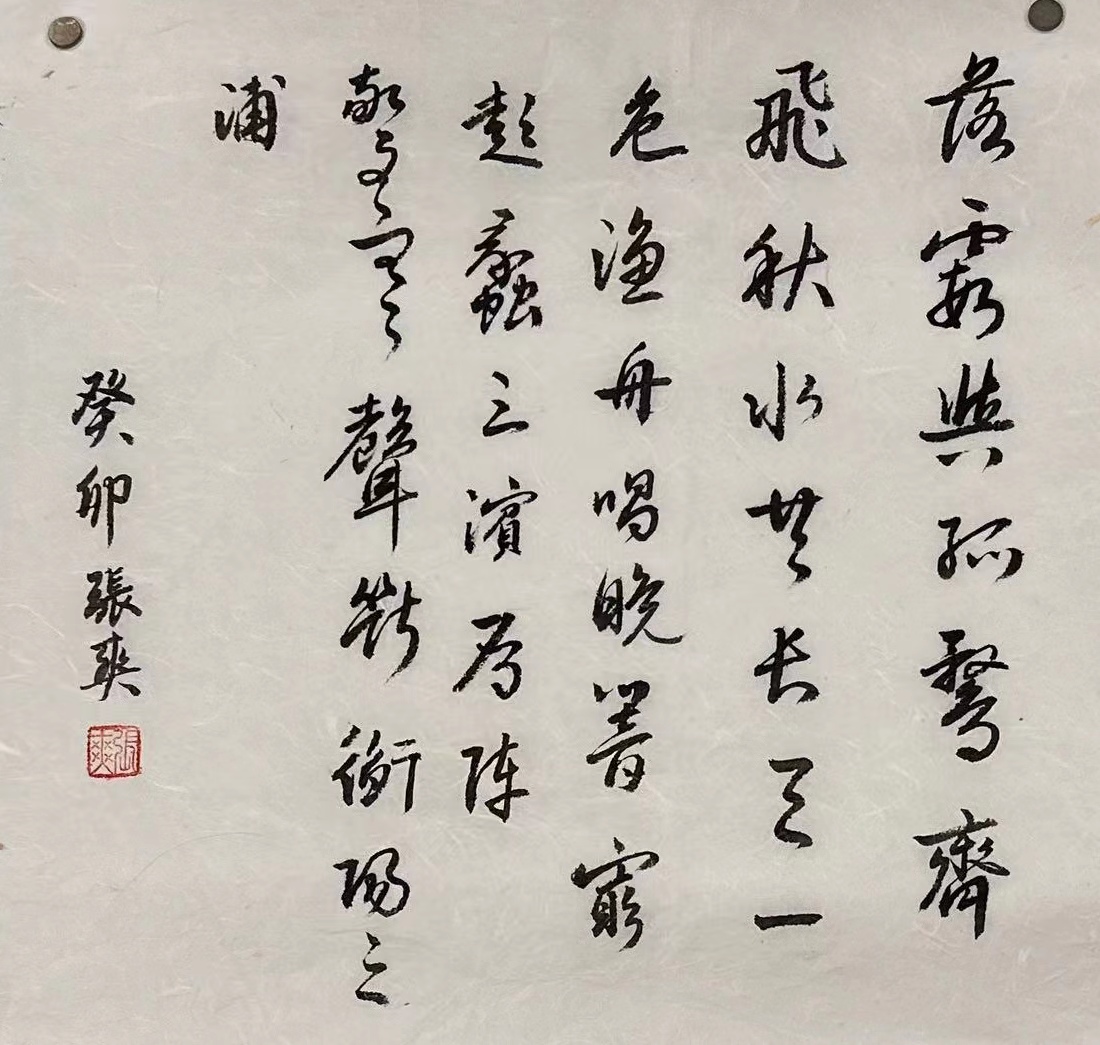 落霞與孤鶩齊
飛秋水共長天一
色漁舟唱晚響窮
彭蠡之濱雁陣
驚寒聲斷衡陽之
浦
癸卯張爽
張爽